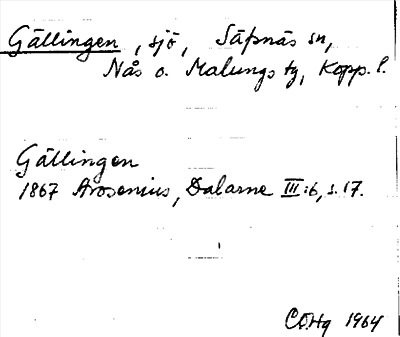 Gällingen, sjö, Säfsnäs sn,
Nås o. Malungs tg, Kopp. l.
Gällingen
1867 Arosenius, Dalarne III:6, s. 17.
COHg 1964